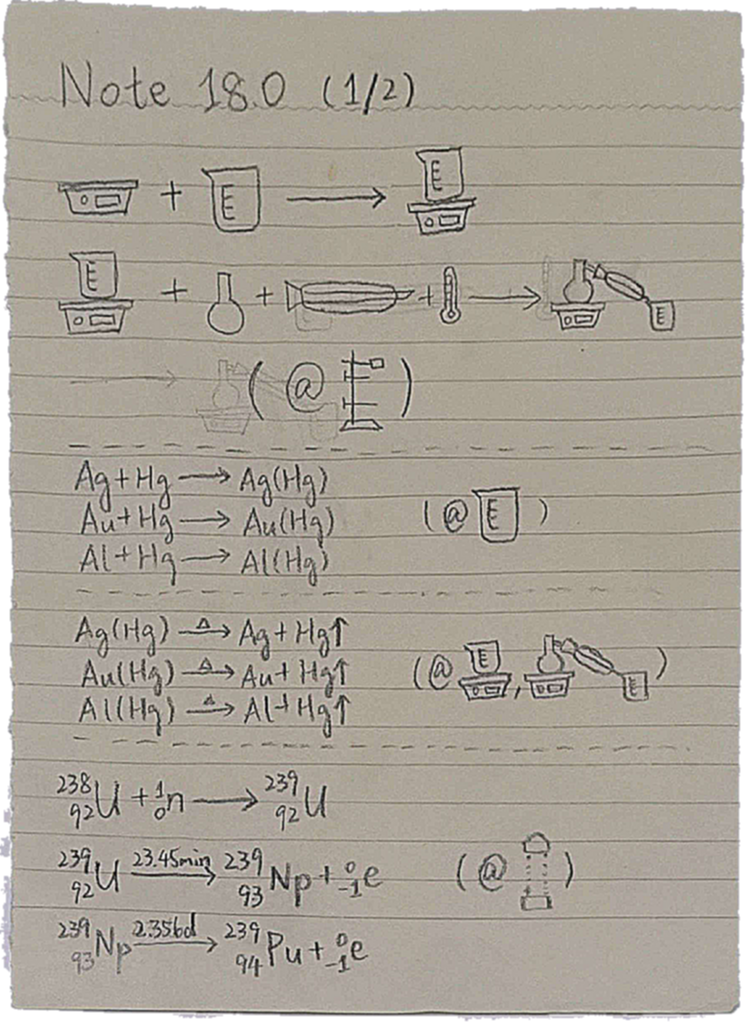 Note 18.0 (1/2)
+ E ⟶ E
E + + + ⟶ E
⟶ (@ )
Ag+Hg ⟶ Ag(Hg)
Au+Hg ⟶ Au(Hg) (@ E )
Al+Hg ⟶ Al(Hg)
Ag(Hg) –△→ Ag+Hg↑
Au(Hg) –△→ Au+Hg↑ (@ E , E )
Al(Hg) –△→ Al+Hg↑
²³⁸₉₂U + ¹₀n ⟶ ²³⁹₉₂U
²³⁹₉₂U –23.45min→ ²³⁹₉₃Np + ⁰₋₁e (@ )
²³⁹₉₃Np –2.356d→ ²³⁹₉₄Pu + ⁰₋₁e